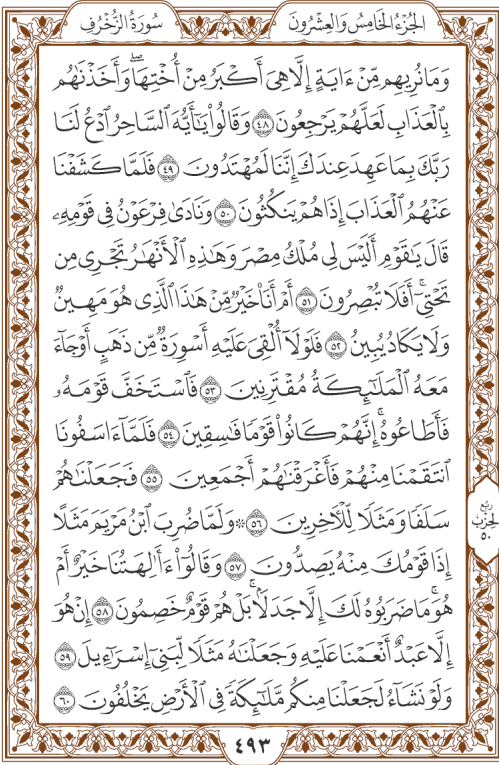 الجُزْءُ الخَامِسُ وَالعِشْرُونَ سُورَةُ الزُّخْرُفِ
وَمَا نُرِيهِم مِّنْ ءَايَةٍ إِلَّا هِىَ أَكْبَرُ مِنْ أُخْتِهَاۖ وَأَخَذْنَٰهُم
بِٱلْعَذَابِ لَعَلَّهُمْ يَرْجِعُونَ ٤٨ وَقَالُوا۟ يَٰٓأَيُّهَ ٱلسَّاحِرُ ٱدْعُ لَنَا
رَبَّكَ بِمَا عَهِدَ عِندَكَ إِنَّنَا لَمُهْتَدُونَ ٤٩ فَلَمَّا كَشَفْنَا
عَنْهُمُ ٱلْعَذَابَ إِذَا هُمْ يَنكُثُونَ ٥٠ وَنَادَىٰ فِرْعَوْنُ فِى قَوْمِهِۦ
قَالَ يَٰقَوْمِ أَلَيْسَ لِى مُلْكُ مِصْرَ وَهَٰذِهِ ٱلْأَنْهَٰرُ تَجْرِى مِن
تَحْتِىٓۚ أَفَلَا تُبْصِرُونَ ٥١ أَمْ أَنَا۠ خَيْرٌ مِّنْ هَٰذَا ٱلَّذِى هُوَ مَهِينٌ
وَلَا يَكَادُ يُبِينُ ٥٢ فَلَوْلَآ أُلْقِىَ عَلَيْهِ أَسْوِرَةٌ مِّن ذَهَبٍ أَوْ جَآءَ
مَعَهُ ٱلْمَلَٰٓئِكَةُ مُقْتَرِنِينَ ٥٣ فَٱسْتَخَفَّ قَوْمَهُۥ
فَأَطَاعُوهُۚ إِنَّهُمْ كَانُوا۟ قَوْمًا فَٰسِقِينَ ٥٤ فَلَمَّآ ءَاسَفُونَا
ٱنتَقَمْنَا مِنْهُمْ فَأَغْرَقْنَٰهُمْ أَجْمَعِينَ ٥٥ فَجَعَلْنَٰهُمْ
سَلَفًا وَمَثَلًا لِّلْءَاخِرِينَ ٥٦ ۞ وَلَمَّا ضُرِبَ ٱبْنُ مَرْيَمَ مَثَلًا
إِذَا قَوْمُكَ مِنْهُ يَصِدُّونَ ٥٧ وَقَالُوٓا۟ ءَأَٰلِهَتُنَا خَيْرٌ أَمْ
هُوَۚ مَا ضَرَبُوهُ لَكَ إِلَّا جَدَلًۢاۚ بَلْ هُمْ قَوْمٌ خَصِمُونَ ٥٨ إِنْ هُوَ
إِلَّا عَبْدٌ أَنْعَمْنَا عَلَيْهِ وَجَعَلْنَٰهُ مَثَلًا لِّبَنِىٓ إِسْرَٰٓءِيلَ ٥٩
وَلَوْ نَشَآءُ لَجَعَلْنَا مِنكُم مَّلَٰٓئِكَةً فِى ٱلْأَرْضِ يَخْلُفُونَ ٦٠
ربع
الحزب
٥٠
٤٩٣